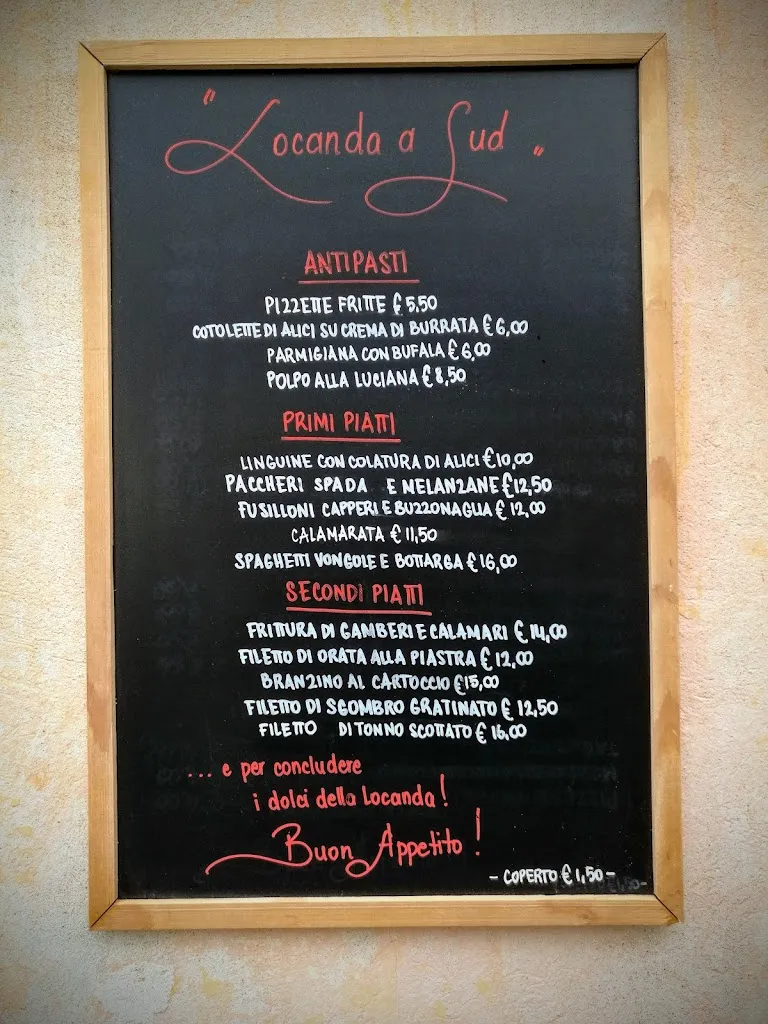 "Locanda a Sud"
ANTIPASTI
PIZZETTE FRITTE € 5,50
COTOLETTE DI ALICI SU CREMA DI BURRATA € 6,00
PARMIGIANA CON BUFALA € 6,00
POLPO ALLA LUCIANA € 8,50
PRIMI PIATTI
LINGUINE CON COLATURA DI ALICI € 10,00
PACCHERI SPADA E MELANZANE € 12,50
FUSILLONI CAPPERI E BUZZONAGLIA € 12,00
CALAMARATA € 11,50
SPAGHETTI VONGOLE E BOTTARGA € 16,00
SECONDI PIATTI
FRITTURA DI GAMBERI E CALAMARI € 14,00
FILETTO DI ORATA ALLA PIASTRA € 12,00
BRANZINO AL CARTOCCIO € 15,00
FILETTO DI SGOMBRO GRATINATO € 12,50
FILETTO DI TONNO SCOTTATO € 16,00
... e per concludere
i dolci della Locanda!
Buon Appetito!
- COPERTO € 1,50 -